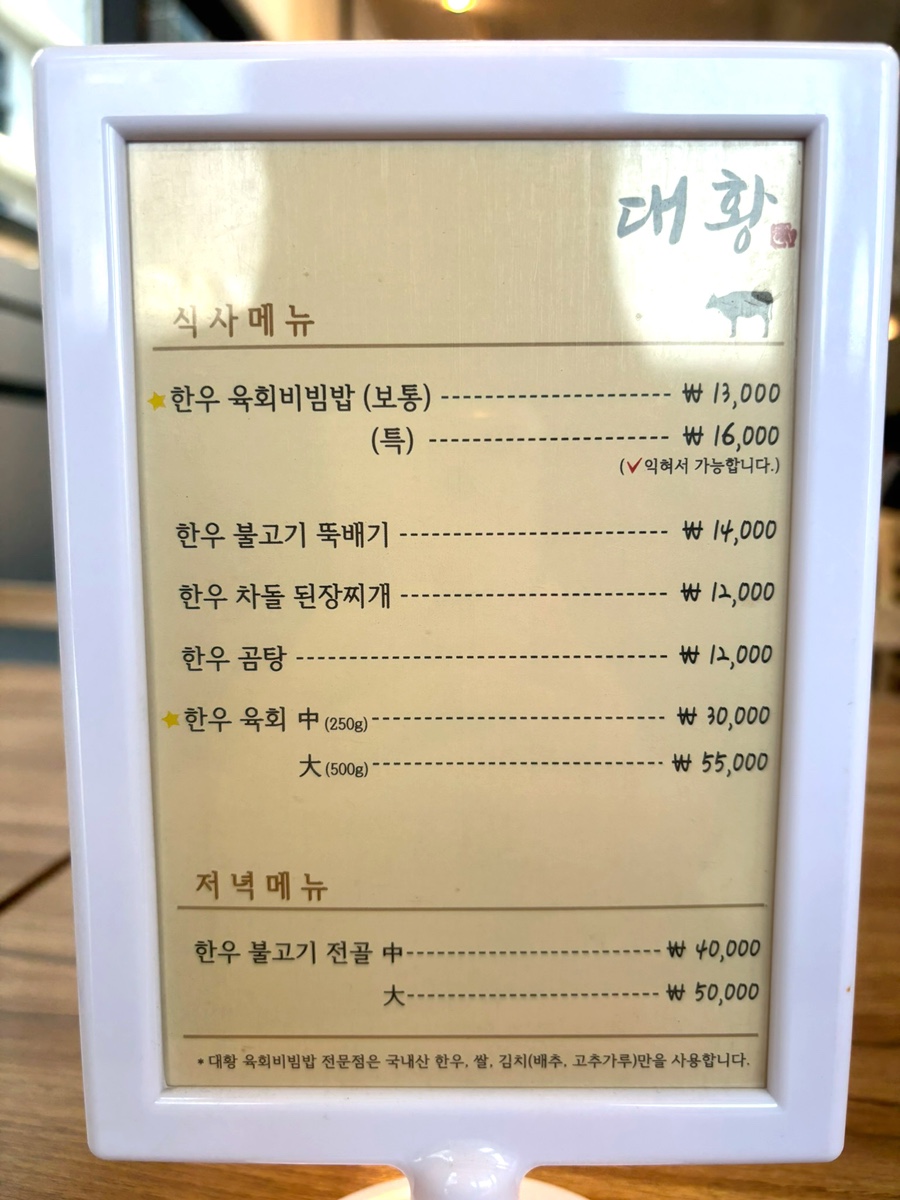 대황
식사메뉴
한우 육회비빔밥 (보통) ₩ 13,000
(특) ₩ 16,000
(✓익혀서 가능합니다.)
한우 불고기 뚝배기 ₩ 14,000
한우 차돌 된장찌개 ₩ 12,000
한우 곰탕 ₩ 12,000
한우 육회 中 (250g) ₩ 30,000
大 (500g) ₩ 55,000
저녁메뉴
한우 불고기 전골 中 ₩ 40,000
大 ₩ 50,000
* 대황 육회비빔밥 전문점은 국내산 한우, 쌀, 김치(배추, 고추가루)만을 사용합니다.